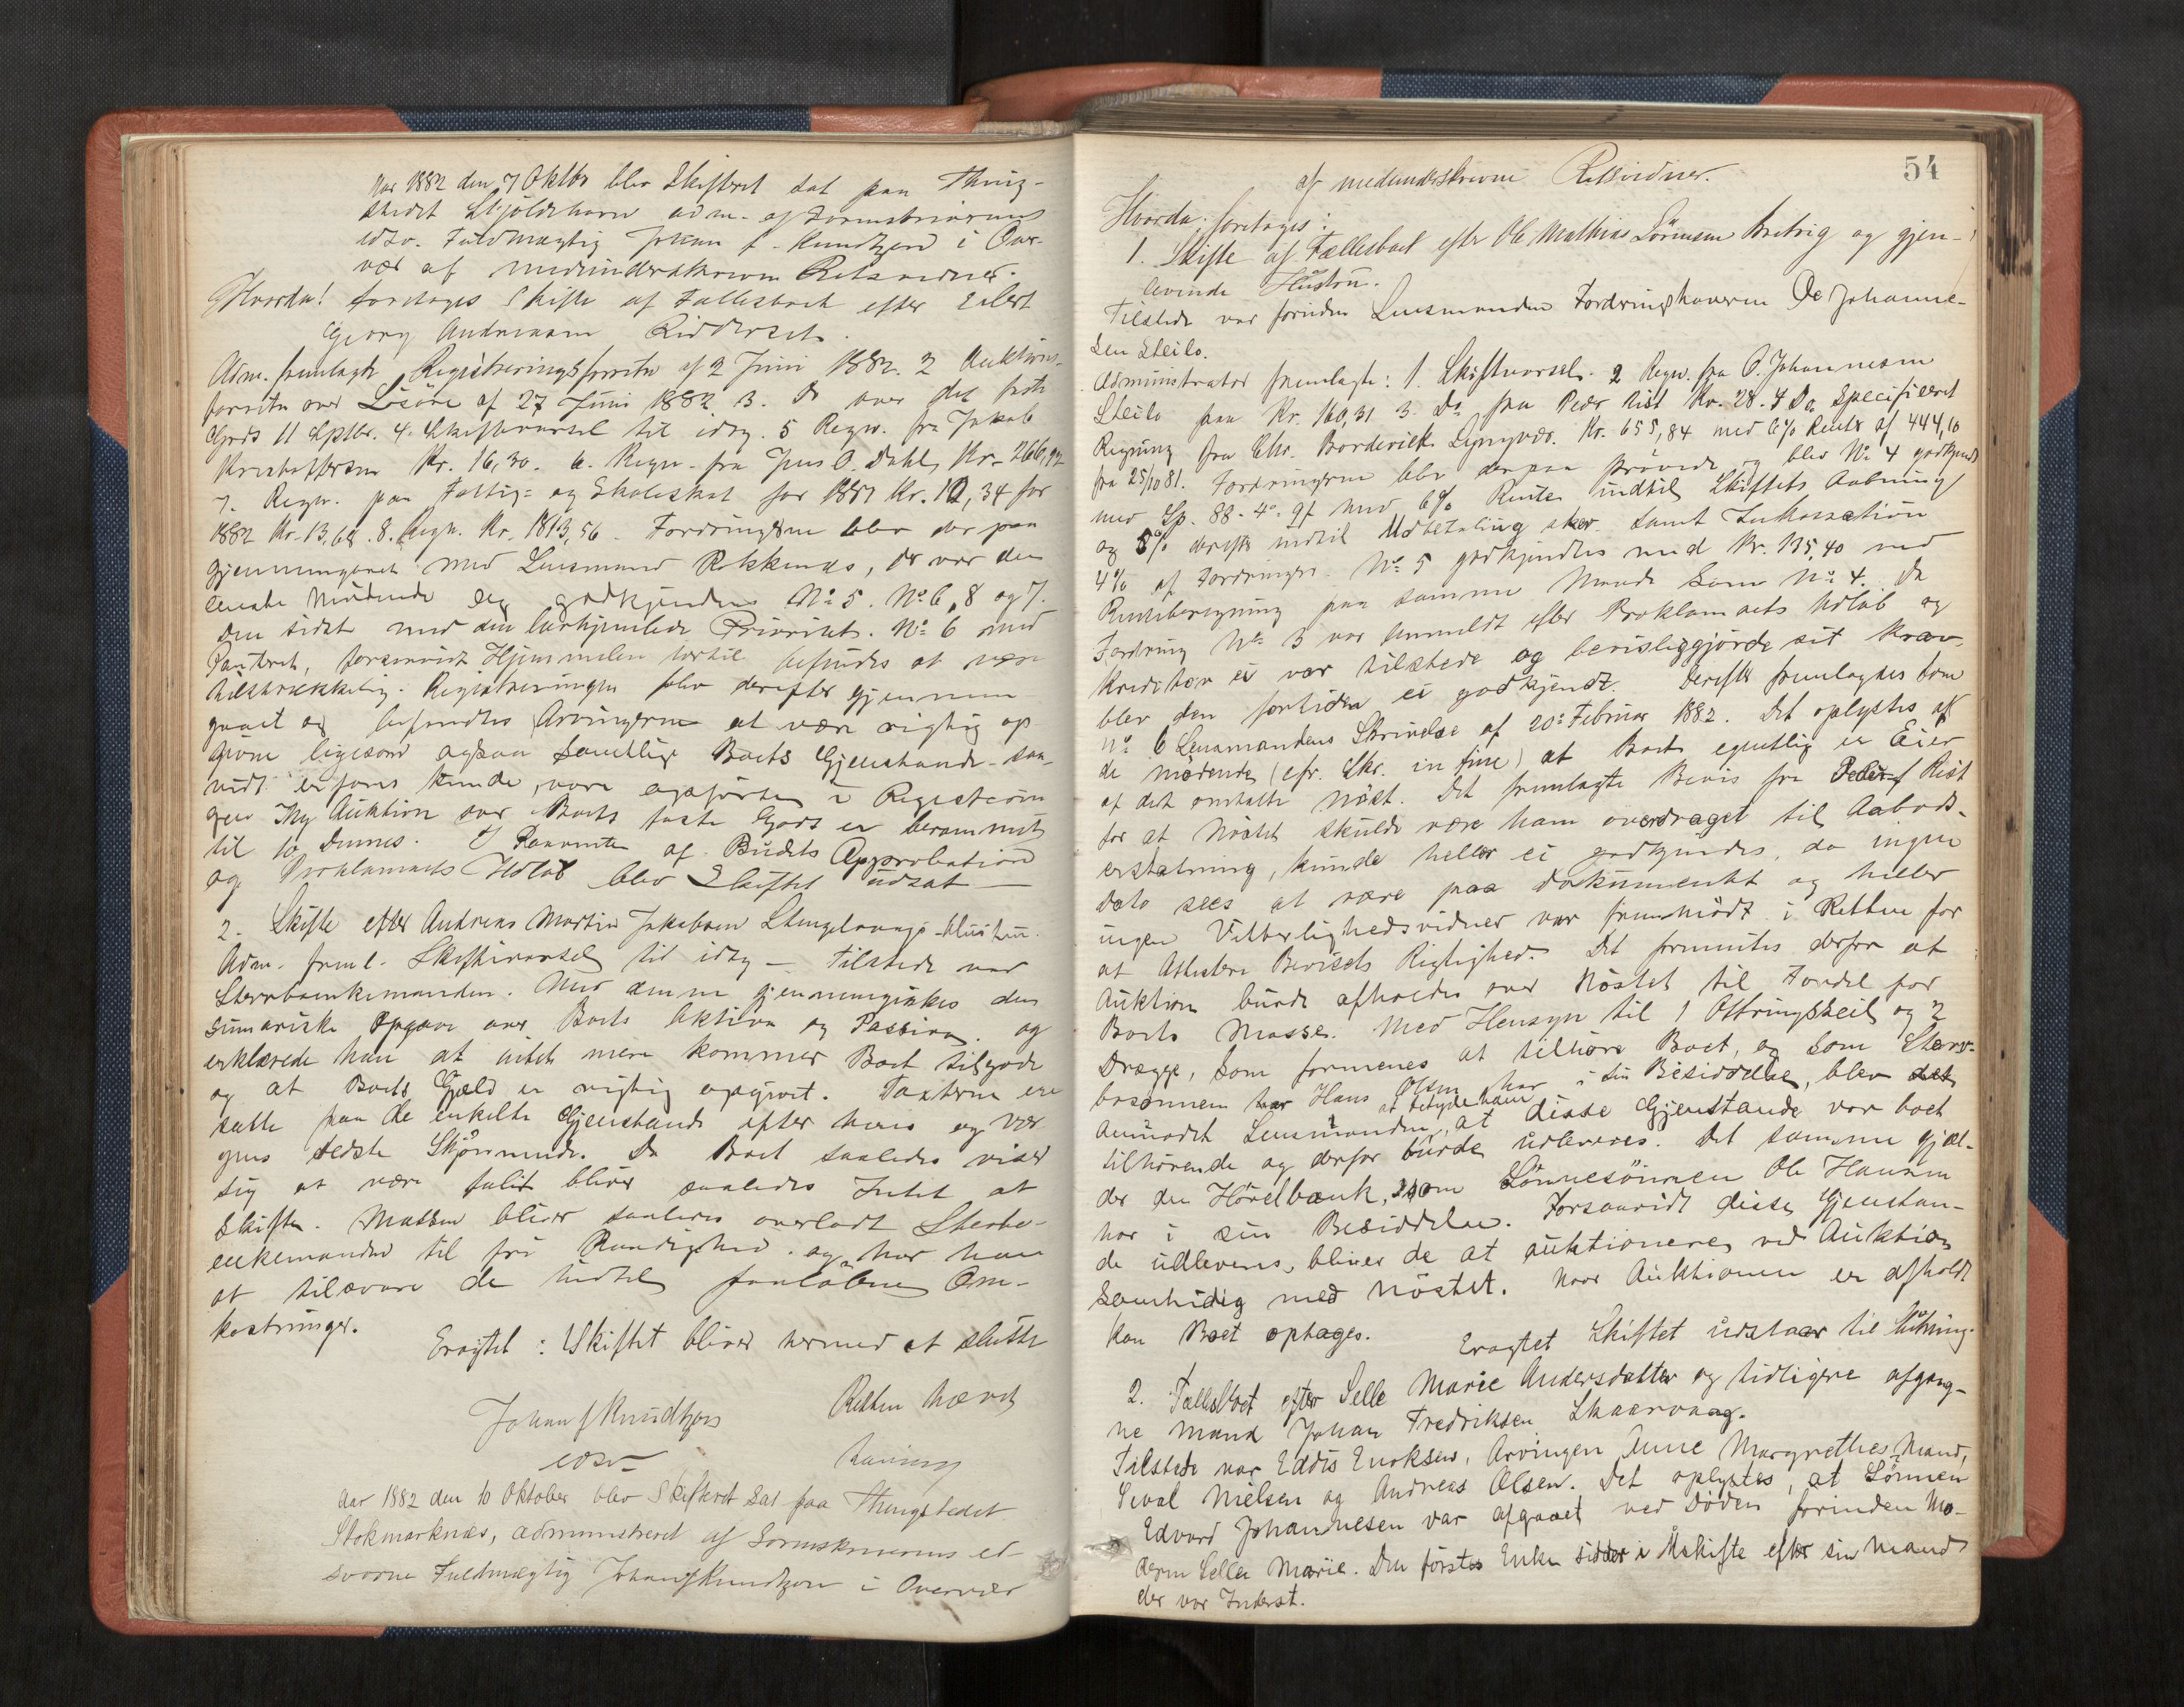 Aar 1882 den 7 Oktbr blev Skifteret sat paa Thing-
stedet Skjoldehavn adm. af Sorenskriverens
edsv. Fuldmægtig Johan f. Knudtzon i Over-
vær af medunderskrevne Retsvidner.
Hvorda! foretoges Skifte af Fællesboet efter Eilert
Georg Andreasen Ridderset.
Adm. fremlagte Registreringsforretn af 2 Juni 1882. 2 Auktions-
forretn over Løsøre af 27 Juni 1882 3. Do over det faste
Gods 11 Sptbr. 4. Skiftevarsel til idag. 5 Regn. fra Jakob
Kristoffersen Kr. 16,30. 6. Regn. fra Jens O. Dahl Kr. 266,92
7. Regn. paa Fattig- og Skoleskat for 1881 Kr. 12,34 for
1882 Kr. 13,68. 8. Regn. Kr. 1813,56. Fordringerne blev der paa
gjennemgaaet med Lensmand Rokkenes, der var den
eneste Mødende og godkjendes No 5. No 6, 8 og 7.
Den sidste med den lovhjemlede Prioritet. No 6 med
Panteret, forsaavidt Hjemmelen dertil befindes at være
tilstrækkelig. Registreringen blev derefter gjennem
gaaet og befandtes Arvingerne at være rigtig op
givne ligesom ogsaa samtlige Boets Gjenstande saa-
vidt erfares kunde, vare opførte i Registrerin
gen Ny Auktion over Boets faste Gods er berammet
til 10 Dennes. I Paavente af Budets Approbation
og Proklamaets Udløb blev Skiftet udsat —
2. Skifte efter Andreas Martin Jakobsen Stengelvaags Hustru.
Adm. freml. Skiftevarsel til idag — Tilstede var
Sterboenkemanden. Med denne gjennemgikkes den
summariske Opgave over Boets Aktiva og Passiva og
erklærede han at intet mere kommer Boet tilgode
og at Boets Gjæld er rigtig opgivet. Taxterne ere
satte paa de enkelte Gjenstande efter hans og Vær
gens bedste Skjønnende. Da Boet saaledes viser
sig at være falit bliver saaledes Intet at
skifte. Massen bliver saaledes overladt Sterbo-
enkemanden til fri Raadighed og har han
at tilsvare de indtil paaløbne Om-
kostninger.
Eragtet: Skiftet bliver hermed at slutte
Retten hævet
Johan f Knudtzon
edsv
Aar 1882 den 10 Oktober blev Skifteret sat paa Thingstedet
Stokmarknæs, administreret af Sorenskriverens ed-
svorne Fuldmægtig Johan f Knudtzon i Overvær
54
af medunderskrevne Retsvidner.
Hvorda foretoges:
1. Skifte af Fællesboet efter Ole Mathias Sørensen Bretvig og gjen-
levende Hustru.
Tilstede var foruden Lensmanden Fordringshaveren Ole Johanne-
sen Steilo.
Administrator fremlagte: 1. Skiftevarsel. 2 Regn. fra O. Johannesen
Steilo paa Kr. 160,31 3. Do fra Peder Rist Kr. 28. 4 Do Specificeret
Regning fra Chr. Borderick Lyngvær. Kr. 655,84 med 6% Renter af 444,10
fra 25/10 81. Fordringerne blev derpaa prøvede og blev No 4 godkjendt
med Sp. 88-4-9 f med 6% Renter indtil Skiftets Aabning
og 5% derefter indtil Udbetaling sker samt Inkassation
4% af Fordringen. No 5 godkjendtes med Kr. 135,40 med
Renteberegning paa samme Maade som No 4. Da
Fordring No 3 var anmeldt efter Proklamaets Udløb og
Kreditor ei var tilstede og bevisliggjorde sit Krav
blev den fortiden ei godkjendt. Derefter fremlagdes som
No 6 Lensmandens Skrivelse af 20de Februar 1882. Det oplystes af
de mødende (cfr. Skr. in fine) at Boet egentlig er Eier
af det omtalte Nøst. Det fremlagte Bevis fra Peder f Rist
for at Nøstet skulde være ham overdraget til Aabods-
erstatning, kunde heller ei godkjendes, da ingen
Dato sees at være paa Dokumentet og heller
ingen Vitterlighedsvidner var fremmødt i Retten for
at Attestere Bevisets Rigtighed. Det formentes derfor at
Auktion burde afholdes over Nøstet til Fordel for
Boets Masse. Med Hensyn til 1 Ottringsseil og 2
Drægge, som formenes at tilhøre Boet, og som Sterv-
bosønnen Hans Olsen har i sin Besiddelse, blev
anmodet Lensmanden at betyde ham, at disse Gjenstande var boet
tilhørende og derfor burde udleveres. Det samme gjæl-
der den Høvelbænk, som Sønnesønnen Ole Hansen
har i sin Besiddelse. Forsaavidt disse Gjenstan-
de udleveres, bliver de at auktionere ved Auktion
samtidig med Nøstet. Naar Auktionen er afholdt
kan Boet optages. Eragtet Skiftet udstaar til Slutning.
2. Fællesboet efter Selle Marie Andersdatter og tidligere afgang-
ne Mand Johan Fredriksen Skaarvaag.
Tilstede var Eddis Enoksen, Arvingen Anne Margrethes Mand,
Sival Nielsen og Andreas Olsen. Det oplystes, at Sønnen
Edvard Johannesen var afgaaet ved Døden forinden Mo-
deren Selle Marie. Den førstes Enke sidder i Uskifte efter sin Mand
der var Inderst.